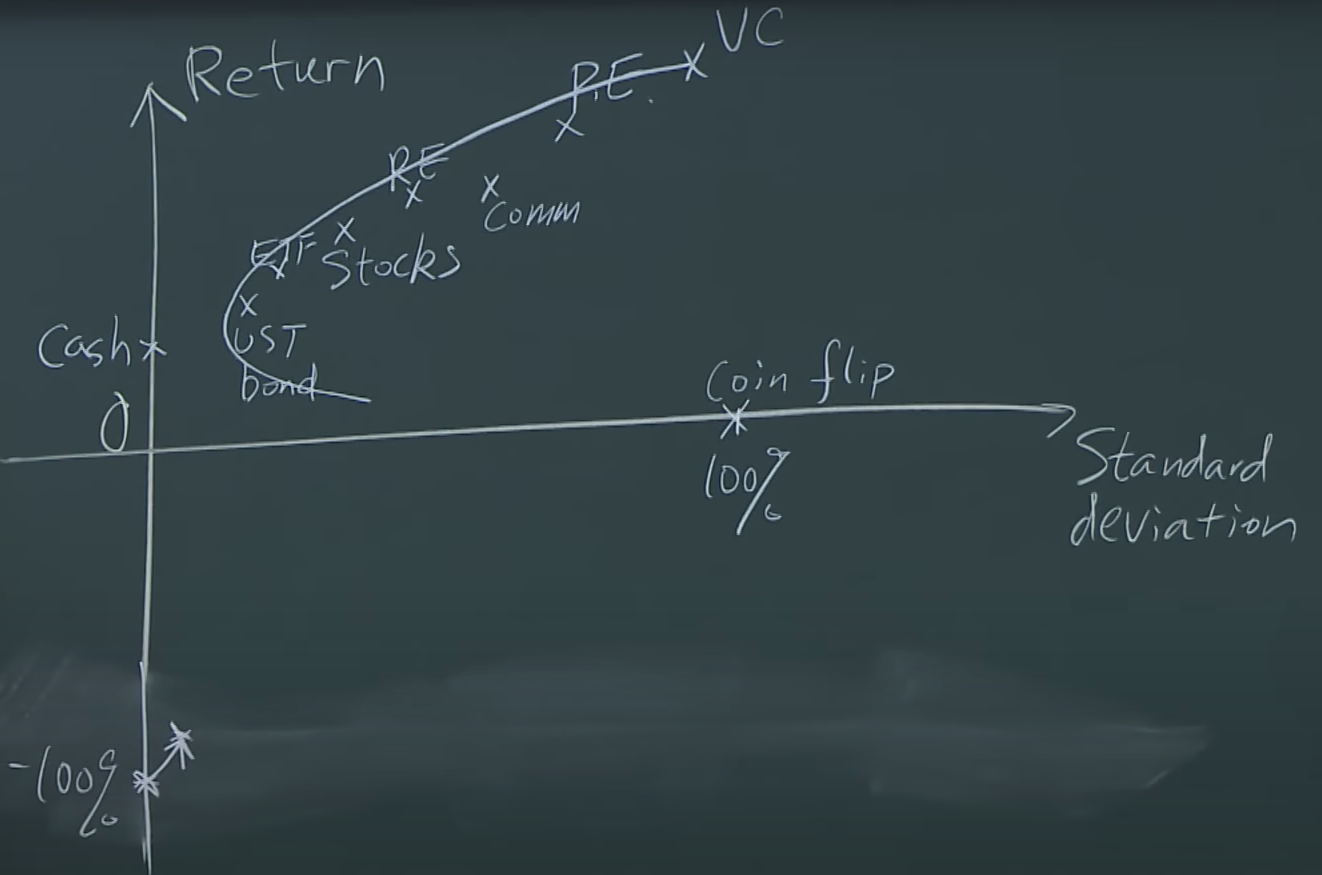 Return
VC
P.E.
RE
Comm
ETF
Stocks
Cash
UST
bond
Coin flip
0
100%
Standard
deviation
-100%